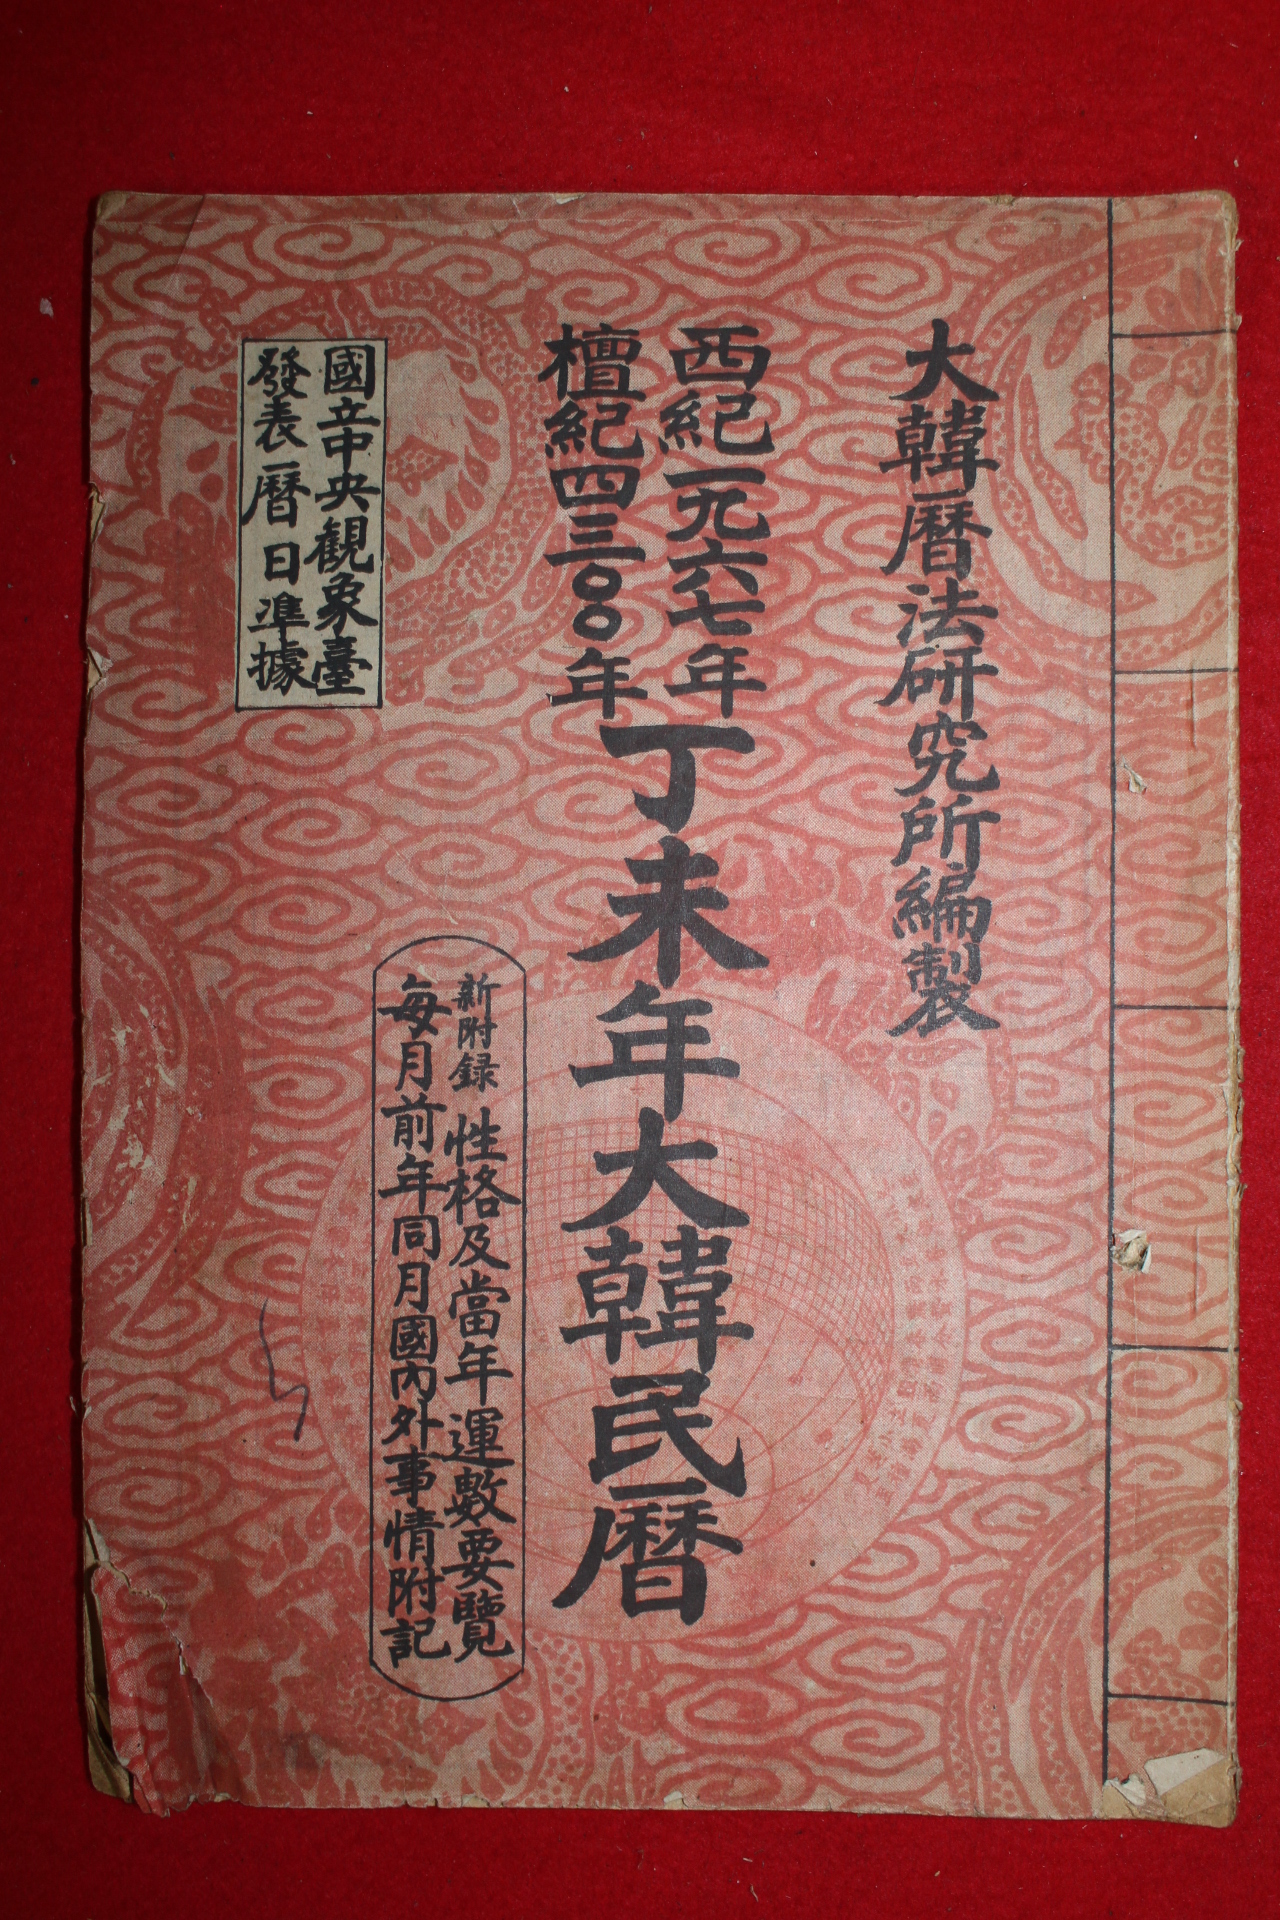 大韓曆法硏究所編製
西紀一九六七年
檀紀四三〇〇年
丁未年大韓民曆
新附録 性格及當年運數要覽
每月前年同月國內外事情附記
國立中央觀象臺
發表曆日準據